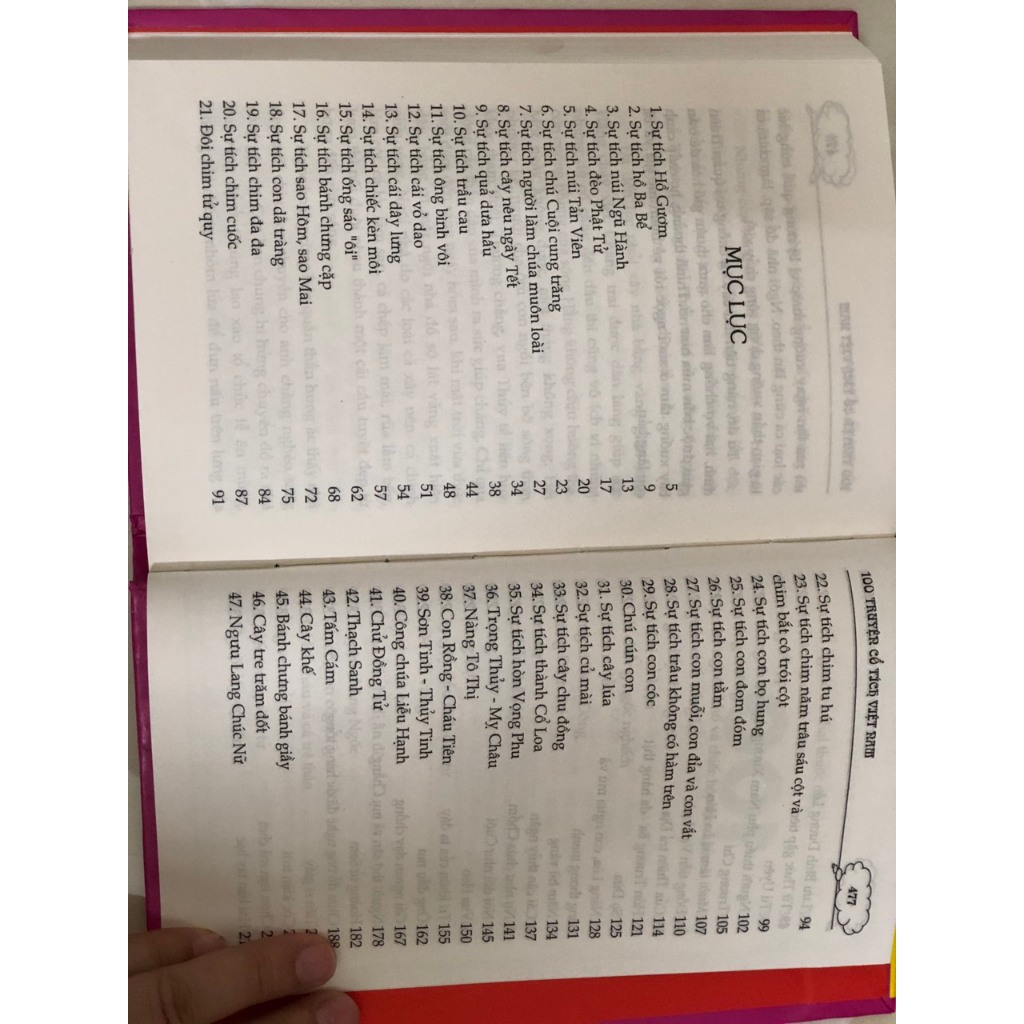 MỤC LỤC
1. Sự tích Hồ Gươm 5
2. Sự tích hồ Ba Bể 9
3. Sự tích núi Ngũ Hành 13
4. Sự tích đèo Phật Tử 17
5. Sự tích núi Tản Viên 20
6. Sự tích chú Cuội cung trăng 23
7. Sự tích người làm chúa muôn loài 27
8. Sự tích cây nêu ngày Tết 34
9. Sự tích quả dưa hấu 38
10. Sự tích trầu cau 44
11. Sự tích ông bình vôi 48
12. Sự tích cái vỏ dao 51
13. Sự tích cái dây lưng 54
14. Sự tích chiếc kèn môi 57
15. Sự tích ống sáo "ôi" 62
16. Sự tích bánh chưng cặp 68
17. Sự tích sao Hôm, sao Mai 72
18. Sự tích con dã tràng 75
19. Sự tích chim đa đa 84
20. Sự tích chim cuốc 87
21. Đôi chim tử quy 91
100 TRUYỆN CỔ TÍCH VIỆT NAM 477
22. Sự tích chim tu hú 94
23. Sự tích chim năm trâu sáu cột và
chim bắt cô trói cột 99
24. Sự tích con bọ hung 102
25. Sự tích con đom đóm 105
26. Sự tích con tằm 107
27. Sự tích con muỗi, con đỉa và con vắt 110
28. Sự tích trâu không có hàm trên 114
29. Sự tích con cóc 121
30. Chú cún con 125
31. Sự tích cây lúa 128
32. Sự tích củ mài 131
33. Sự tích cây chu đồng 134
34. Sự tích thành Cổ Loa 137
35. Sự tích hòn Vọng Phu 141
36. Trọng Thủy - Mỵ Châu 145
37. Nàng Tô Thị 150
38. Con Rồng - Cháu Tiên 155
39. Sơn Tinh - Thủy Tinh 162
40. Công chúa Liễu Hạnh 167
41. Chử Đồng Tử 178
42. Thạch Sanh 182
43. Tấm Cám 188
44. Cây khế
45. Bánh chưng bánh giầy
46. Cây tre trăm đốt
47. Ngưu Lang Chúc Nữ